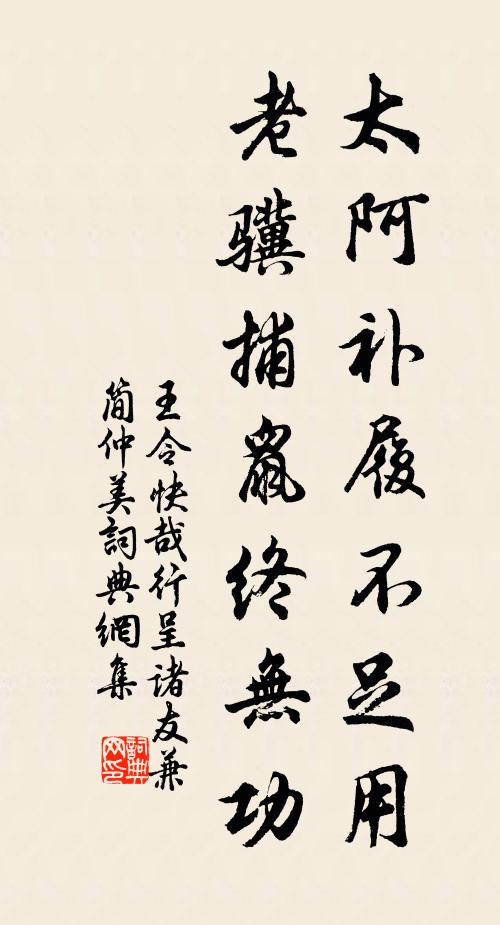 太阿补履不足用
老骥捕鼠终無功
王令快哉行呈诸友兼
简仲美詞典網集
詞典
网印